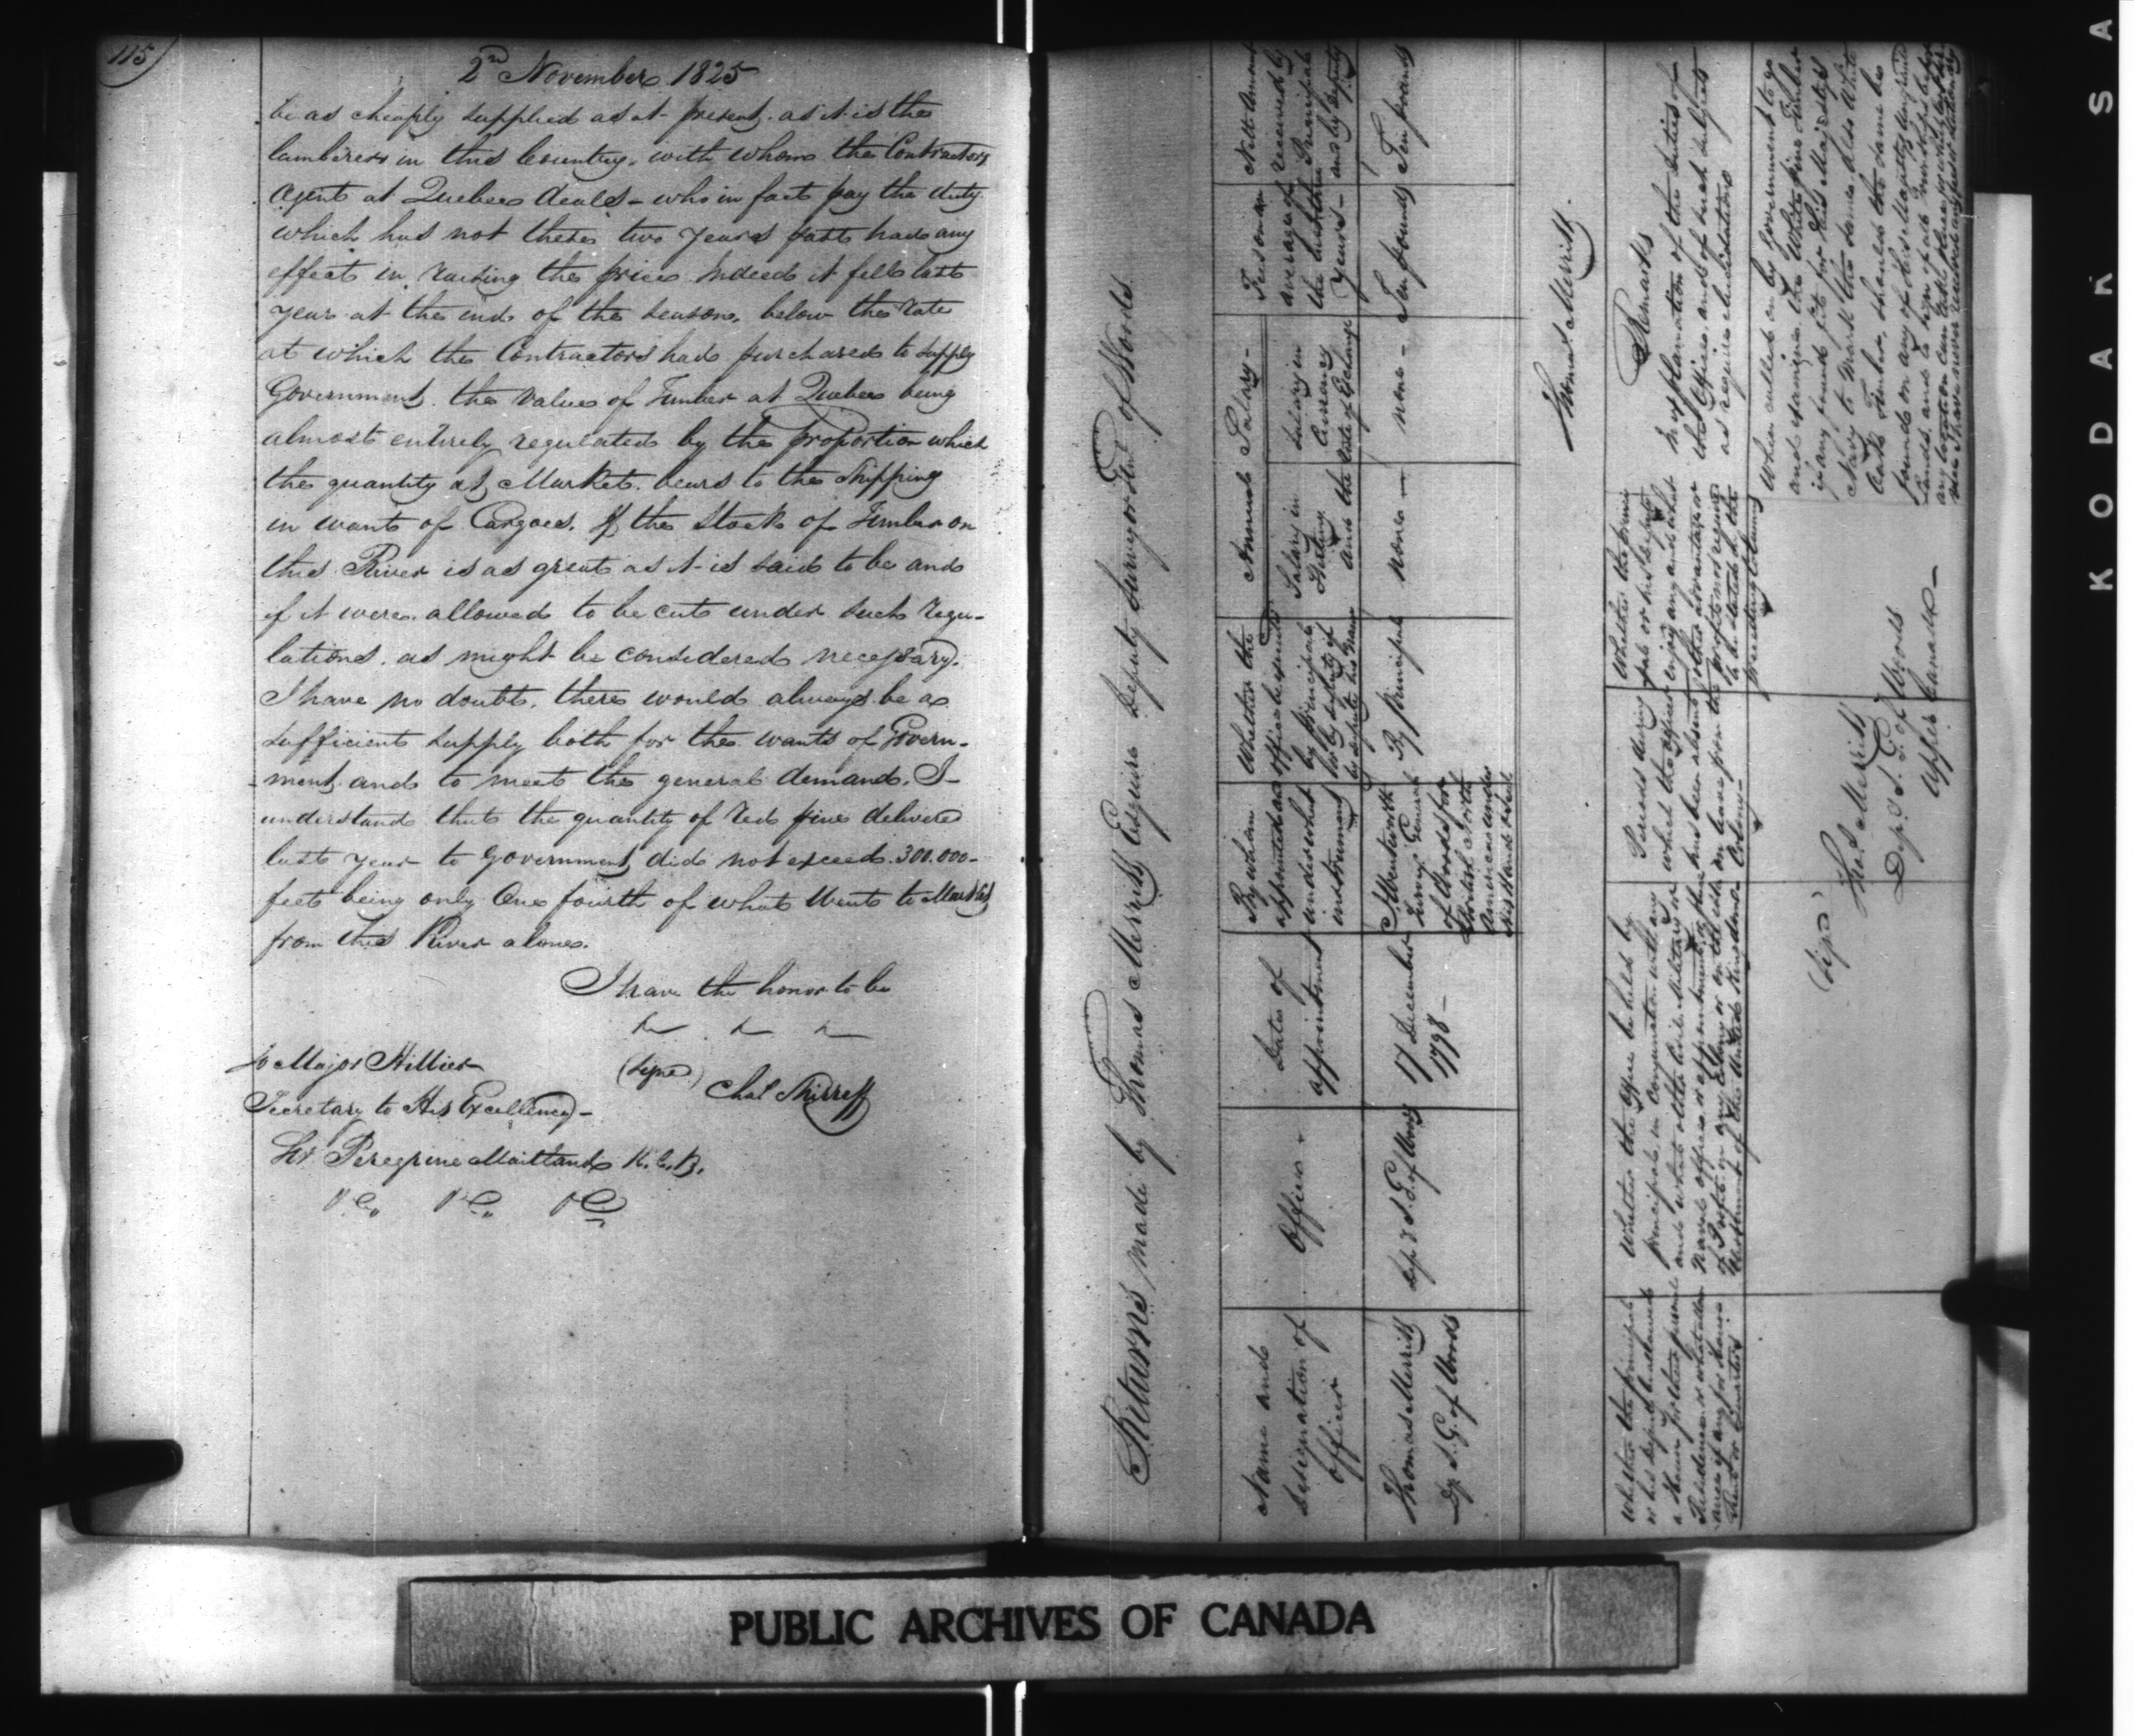 115
2nd November 1825
be as cheaply supplied as at present, as it is the
lumberers in this Country, with whom the Contractors
Agent at Quebec deals - who in fact pay the duty
which has not these two years past had any
effect in raising the price. Indeed it fell last
year at the end of the season, below the rate
at which the Contractors had purchased to supply
Government. the value of Timber at Quebec being
almost entirely regulated by the proportion which
the quantity at Market bears to the Shipping
in want of Cargoes. If the Stock of Timber on
this River is as great as it is said to be and
if it were allowed to be cut under such regu-
lations, as might be considered necessary.
I have no doubt, there would always be a
sufficient supply both for the wants of Govern-
ment and to meet the general demand. I-
understand that the quantity of Red pine delivered
last year to Government did not exceed 300.000-
feet being only One fourth of what went to Market
from this River alone.
I have the honor to be
(signed) Chas Shirreff
To Major Hillier
Secretary to His Excellency -
Sir Peregrine Maitland K.C.B.
&c. &c. &c.
Returns made by Thomas Merritt Esquire Deputy Surveyor Genl of Woods
Name and designation of Officer
Office -
Date of appointment
By whom appointed and under what instrument
Whether the office be executed by Principal or by deputy if by deputy his Name
Annual Salary -
Salary in Sterling
Salary in Currency
and the rate of Exchange
average of the last three Years -
Nett Amount received by Principal and by deputy
Thomas Merritt Dy S. G. of Woods
Dep. S. G. of Woods
17 December 1798 -
J Wentworth Survey. General of Woods for British North America under His Hand & Seal
By Principal
none -
none -
Ten pounds
Ten pounds
Thomas Merritt.
Whether the principal or his deputy be allowed a House for their personal Residence or what allowance if any for House Rent or Quarters
Whether the office be held by principal in Conjunction with any and what other Civil Military or Naval office or appointment or place of Profit in any Colony or on the Establishment of the United Kingdom
Periods during which the Officer has been absent on leave from the Colony -
Whether the principal or his deputy enjoy any and what other advantages or profits not required to be stated in the preceding Columns
Remarks
In explanation of the duties of the Office and of such subjects as require elucidation
When called on by Government to go and examine the White pine Timber if any found fit for His Majestys Navy to mark the same Also White Oak Timber, should the same be found on any of His Majestys ungranted Lands, and to sign all Townships before any location can take place for which latter duty I have never received any per
(Sigd) Thos Merritt
Depy S. G. of Woods
Upper Canada -
PUBLIC ARCHIVES OF CANADA
KODAK SA